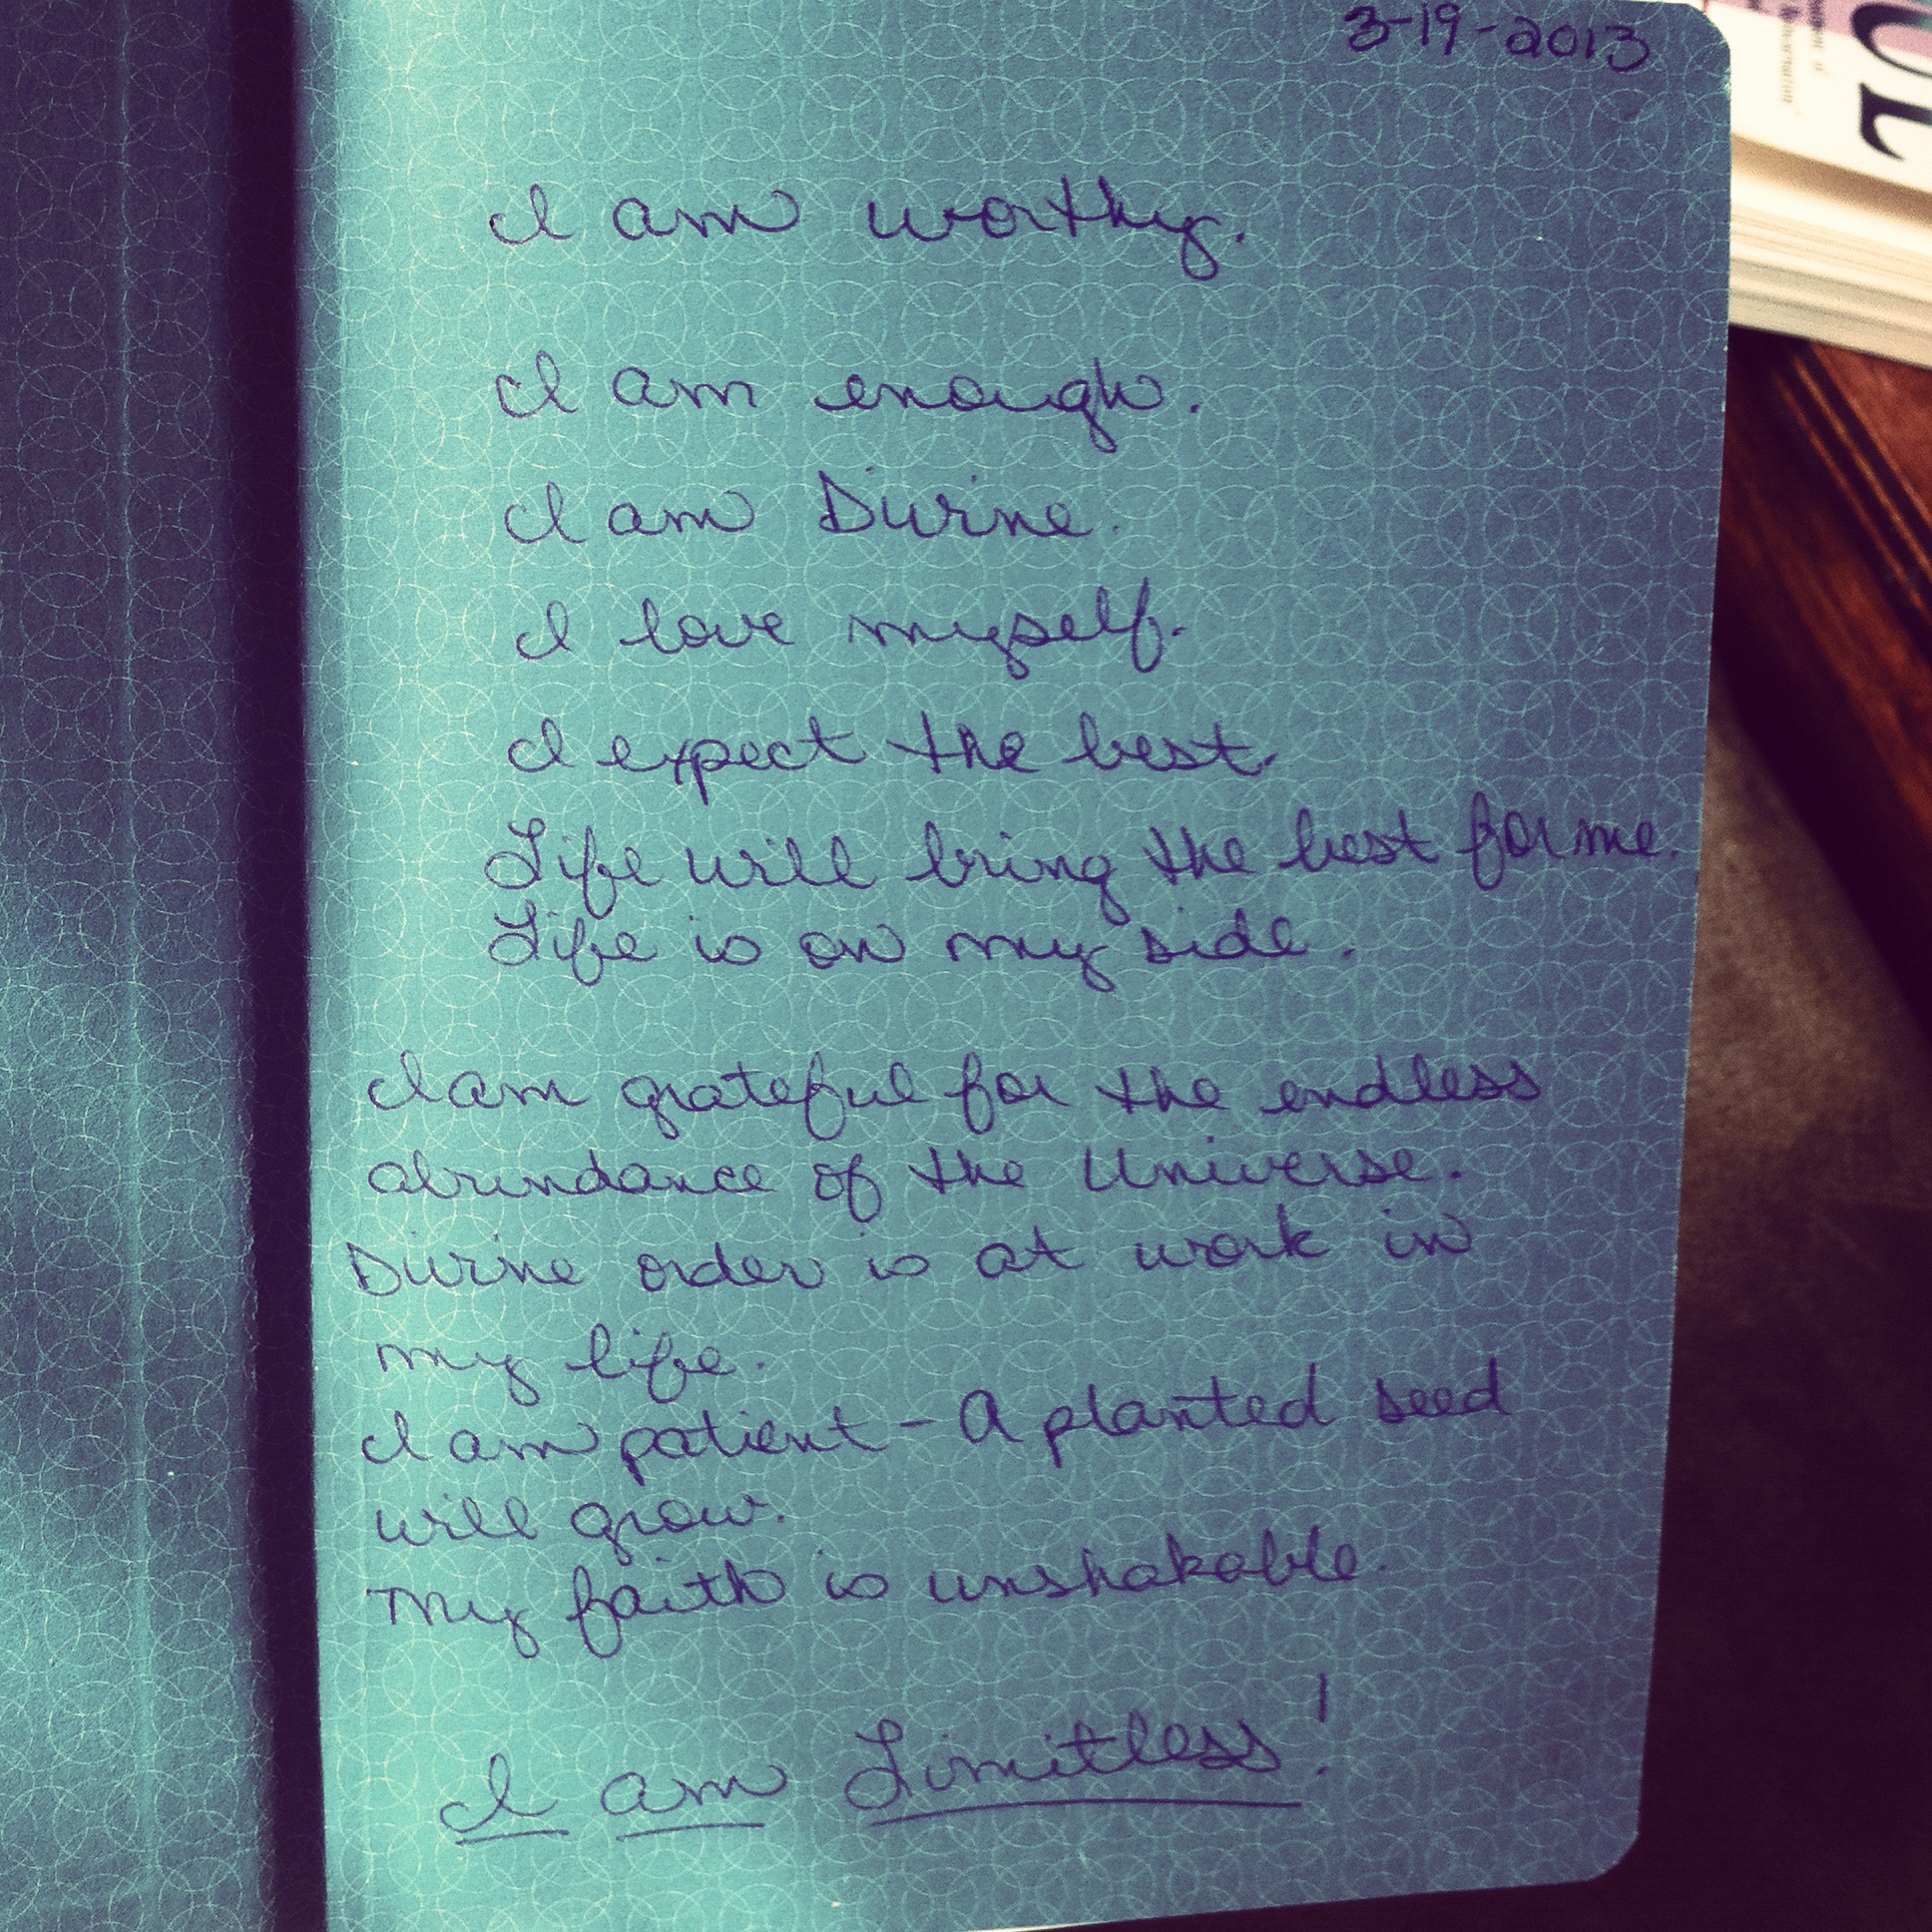 3-19-2013
I am worthy.
I am enough.
I am Divine.
I love myself.
I expect the best.
Life will bring the best for me.
Life is on my side.
I am grateful for the endless
abundance of the Universe.
Divine order is at work in
my life.
I am patient - A planted seed
will grow.
My faith is unshakable.
I am Limitless!
10